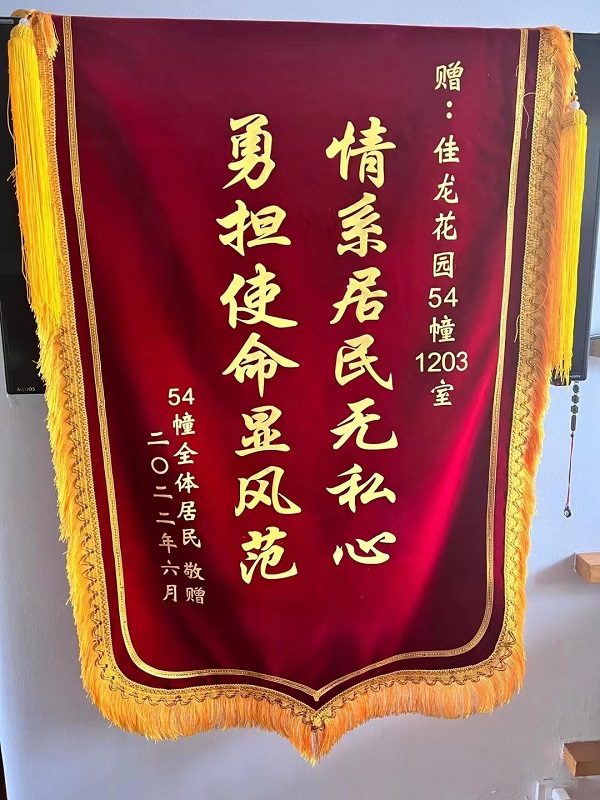 赠：佳龙花园54幢1203室
情系居民无私心
勇担使命显风范
54幢全体居民 敬赠
二〇二二年六月